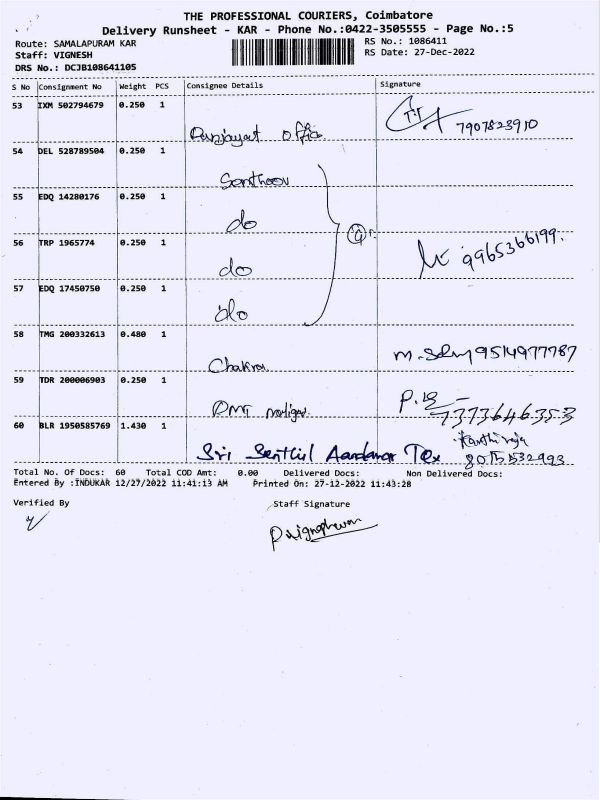 THE PROFESSIONAL COURIERS, Coimbatore
Delivery Runsheet - KAR - Phone No.:0422-3505555 - Page No.:5
Route: SAMALAPURAM KAR
RS No.: 1086411
Staff: VIGNESH
RS Date: 27-Dec-2022
DRS No.: DCJB108641105
S No Consignment No Weight PCS Consignee Details Signature
53 IXM 502794679 0.250 1
Panjayat office 7907823910
54 DEL 528789504 0.250 1
Santhosv
55 EDQ 14280176 0.250 1
do
56 TRP 1965774 0.250 1
do 9965366199.
57 EDQ 17450750 0.250 1
do
58 TMG 200332613 0.480 1
Chakra 9514977787
59 TDR 200006903 0.250 1
7373646353
60 BLR 1950585769 1.430 1
Sri Senthil Aandavar Tex
Total No. Of Docs: 60 Total COD Amt: 0.00 Delivered Docs: Non Delivered Docs:
Entered By :INDUKAR 12/27/2022 11:41:13 AM Printed On: 27-12-2022 11:43:28
Verified By Staff Signature